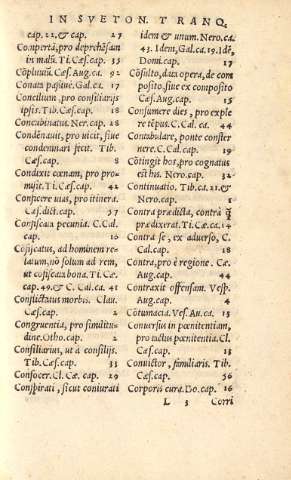 IN SVETON. TRANQ.
cap. 22. & cap. 27
Compertā, pro deprehēsam
in malū. Ti. Cæs. cap. 35
Cōpluuiū. Cæs. Aug. ca. 92
Conata paſiue. Gal. ca. 17
Concilium, pro conſiliariis
ipſis. Tib. Cæſ. cap. 55
Concubinatus. Ner. cap. 28
Condēnauit, pro uicit, ſiue
condemnari fecit. Tib.
Cæſ. cap. 8
Condixit cœnam, pro pro-
miſit. Ti. Cæſ. cap. 42
Conficere uias, pro itinera.
Cæſ. dict. cap. 57
Confiſcata pecunia. C. Cal.
cap. 10
Cōfiſcatus, ad hominem re-
latum, nō ſolum ad rem,
ut cōfiſcata bona. Ti. Cæ.
cap. 49. & C. Cal. ca. 41
Conflictatus morbis. Clau.
Cæſ. cap. 2
Congruentia, pro ſimilitu-
dine. Otho. cap. 2
Conſiliarius, ut à conſilijs.
Tib. Cæſ. cap. 35
Conſocer. Cl. Cæ. cap. 29
Conſpirati, ſicut coniurati
idem & unum. Nero. ca.
43. Idem, Gal. ca. 19. Idē,
Domi. cap. 17
Cōſulto, data opera, de com
poſito, ſiue ex compoſito
Cæſ. Aug. cap. 95
Conſumere dies, pro exple
re tēpus. C. Cal. ca. 44
Contabulare, ponte conſter
nere. C. Cal. cap. 19
Cōtingit hos, pro cognatus
eſt his. Nero. cap. 32
Continuatio. Tib. ca. 21. &
Nero. cap. 1
Contra prædicta, contra ꝗ̃
prædixerat. Ti. Cæ. ca. 14
Contra ſe, ex aduerſo, C.
Cal. cap. 18
Contra, pro è regione. Cæ.
Aug. cap. 44
Contraxit offenſam. Veſp.
Aug. cap. 4
Cōtumacia. Veſ. Au. ca. 15
Conuerſus in pœnitentiam,
pro tactus pœnitentia. Cl.
Cæſ. cap. 15
Conuictor, familiaris. Tib.
Cæſ. cap. 56
Corporis cura. Do. cap. 16
L 3 Corri